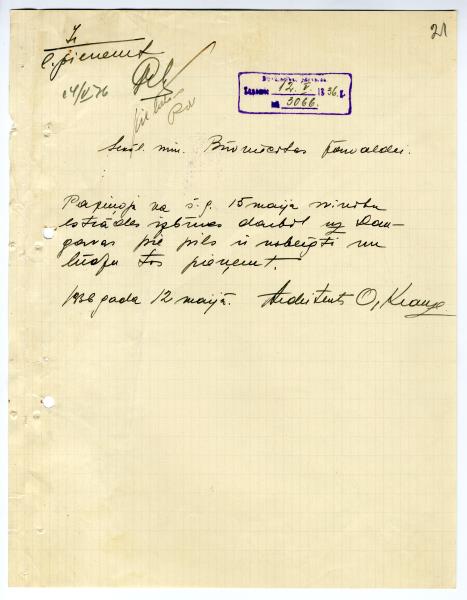 21
Iz
l. pieņemt
14/V 36
12. V. 1936. g.
№ 3066.
Būvniecības pārvaldei.
Paziņoju ka š. g. 15 maija svinību
estrādes izbūves darbi uz Dau-
gavas pie pils ir nobeigti un
lūdzu tos pieņemt.
1936 gada 12 maijā. Architekts O. Krauze